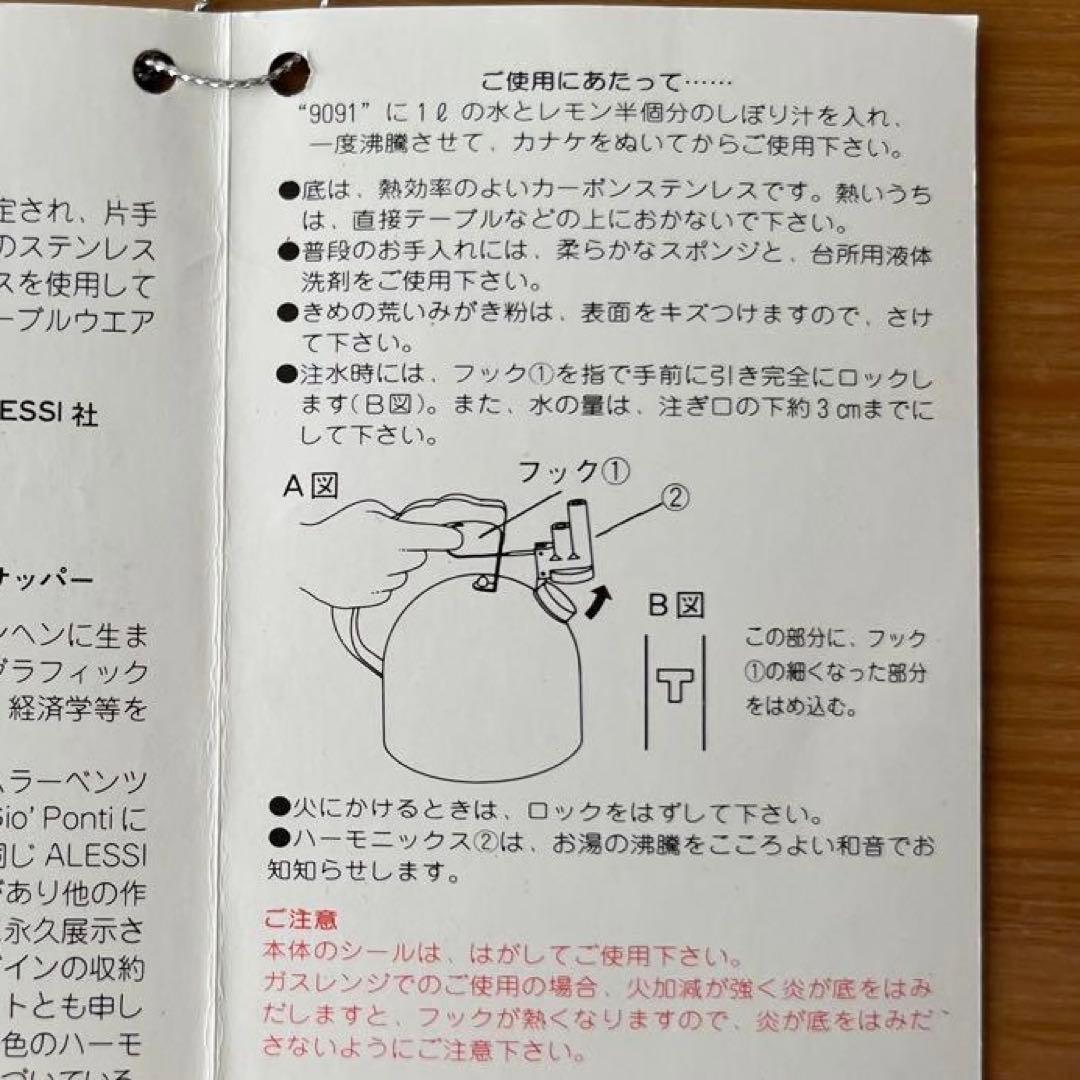 定され、片手
のステンレス
スを使用して
ーブルウエア
ALESSI 社
サッパー
ンヘンに生ま
グラフィック
経済学等を
ムラーベンツ
Gio' Ponti に
同じ ALESSI
があり他の作
永久展示さ
ザインの収約
トとも申し
色のハーモ
づいている
ご使用にあたって……
“9091” に 1ℓ の水とレモン半個分のしぼり汁を入れ、
一度沸騰させて、カナケをぬいてからご使用下さい。
●底は、熱効率のよいカーボンステンレスです。熱いうち
は、直接テーブルなどの上におかないで下さい。
●普段のお手入れには、柔らかなスポンジと、台所用液体
洗剤をご使用下さい。
●きめの荒いみがき粉は、表面をキズつけますので、さけ
て下さい。
●注水時には、フック①を指で手前に引き完全にロックし
ます(B図)。また、水の量は、注ぎ口の下約3㎝までに
して下さい。
A図
フック①
②
B図
この部分に、フック
①の細くなった部分
をはめ込む。
●火にかけるときは、ロックをはずして下さい。
●ハーモニックス②は、お湯の沸騰をこころよい和音でお
知知らせします。
ご注意
本体のシールは、はがしてご使用下さい。
ガスレンジでのご使用の場合、火加減が強く炎が底をはみ
だしますと、フックが熱くなりますので、炎が底をはみだ
さないようにご注意下さい。